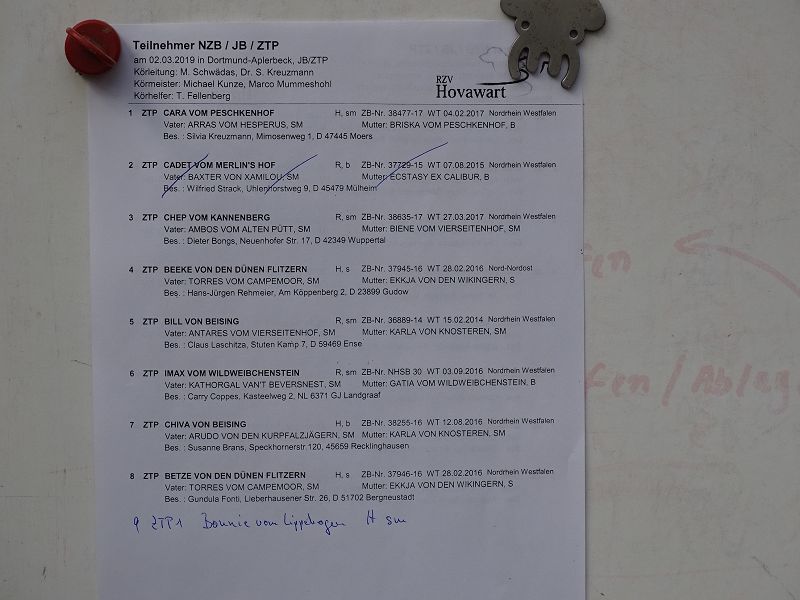 Teilnehmer NZB / JB / ZTP
am 02.03.2019 in Dortmund-Aplerbeck, JB/ZTP
Körleitung: M. Schwädas, Dr. S. Kreuzmann
Körmeister: Michael Kunze, Marco Mummeshohl
Körhelfer: T. Fellenberg
RZV
Hovawart
1 ZTP CARA VOM PESCHKENHOF H, sm ZB-Nr. 38477-17 WT 04.02.2017 Nordrhein Westfalen
Vater: ARRAS VOM HESPERUS, SM Mutter: BRISKA VOM PESCHKENHOF, B
Bes. : Silvia Kreuzmann, Mimosenweg 1, D 47445 Moers
2 ZTP CADET VOM MERLIN'S HOF R, b ZB-Nr. 37729-15 WT 07.08.2015 Nordrhein Westfalen
Vater: BAXTER VON XAMILOU, SM Mutter: ECSTASY EX CALIBUR, B
Bes. : Wilfried Strack, Uhlenhorstweg 9, D 45479 Mülheim
3 ZTP CHEP VOM KANNENBERG R, sm ZB-Nr. 38635-17 WT 27.03.2017 Nordrhein Westfalen
Vater: AMBOS VOM ALTEN PÜTT, SM Mutter: BIENE VOM VIERSEITENHOF, SM
Bes. : Dieter Bongs, Neuenhofer Str. 17, D 42349 Wuppertal
4 ZTP BEEKE VON DEN DÜNEN FLITZERN H, s ZB-Nr. 37945-16 WT 28.02.2016 Nord-Nordost
Vater: TORRES VOM CAMPEMOOR, SM Mutter: EKKJA VON DEN WIKINGERN, S
Bes. : Hans-Jürgen Rehmeier, Am Köppenberg 2, D 23899 Gudow
5 ZTP BILL VON BEISING R, sm ZB-Nr. 36889-14 WT 15.02.2014 Nordrhein Westfalen
Vater: ANTARES VOM VIERSEITENHOF, SM Mutter: KARLA VON KNOSTEREN, SM
Bes. : Claus Laschitza, Stuten Kamp 7, D 59469 Ense
6 ZTP IMAX VOM WILDWEIBCHENSTEIN R, sm ZB-Nr. NHSB 30 WT 03.09.2016 Nordrhein Westfalen
Vater: KATHORGAL VAN'T BEVERSNEST, SM Mutter: GATIA VOM WILDWEIBCHENSTEIN, B
Bes. : Carry Coppes, Kasteelweg 2, NL 6371 GJ Landgraaf
7 ZTP CHIVA VON BEISING H, b ZB-Nr. 38255-16 WT 12.08.2016 Nordrhein Westfalen
Vater: ARUDO VON DEN KURPFALZJÄGERN, SM Mutter: KARLA VON KNOSTEREN, SM
Bes. : Susanne Brans, Speckhornerstr.120, 45659 Recklinghausen
8 ZTP BETZE VON DEN DÜNEN FLITZERN H, s ZB-Nr. 37946-16 WT 28.02.2016 Nordrhein Westfalen
Vater: TORRES VOM CAMPEMOOR, SM Mutter: EKKJA VON DEN WIKINGERN, S
Bes. : Gundula Fonti, Lieberhausener Str. 26, D 51702 Bergneustadt
9 ZTP1 Bonnie vom Lippehagen H sm
fen
fen / Ablag